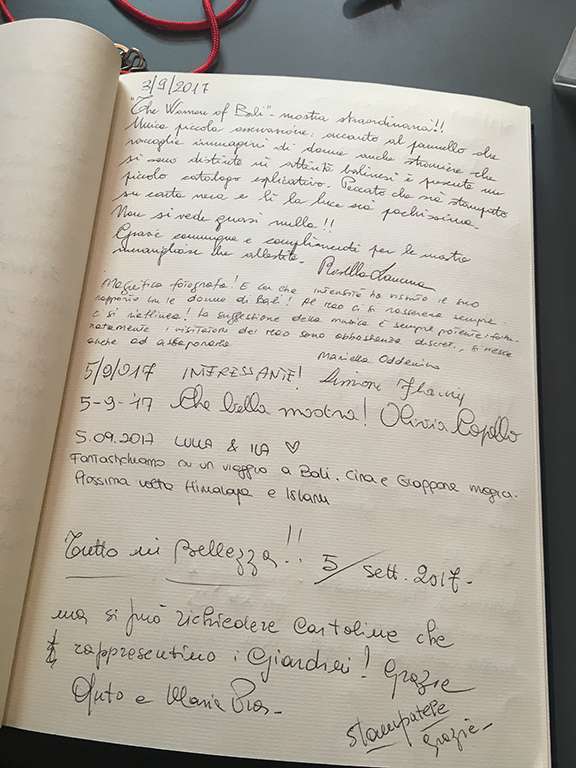 3/9/2017
"The Women of Bali" - mostra straordinaria!!
Unica piccola osservazione: accanto al pannello che
raccoglie immagini di donne anche straniere che
si sono distinte in attività balinesi è presente un
piccolo catalogo esplicativo. Peccato che sia stampato
su carta nera e lì la luce sia pochissima.
Non si vede quasi nulla!!
Grazie comunque e complimenti per le mostre
meravigliose che allestite.
Rosella
Magnifica fotografa! E con che intensità ha vissuto il suo
rapporto con le donne di Bali! Al MAO ci si rasserena sempre
e si riallinea! La suggestione della musica è sempre potente: fortu-
natamente i visitatori del MAO sono abbastanza discreti, si riesce
anche ad assaporarla
Mariella Oddenino
5/9/2017 INTERESSANTE! Simone
5-9-'17 Che bella mostra! Olivia Copello
5.09.2017 LULLA & ILA ♡
Fantastichiamo su un viaggio a Bali, Cina e Giappone magica.
Prossima volta Himalaya e Islam
Tutto in Bellezza!! 5/sett. 2017-
ma si può richiedere cartoline che
rappresentino i Giardini! Grazie
e Maria
stampatele
grazie-